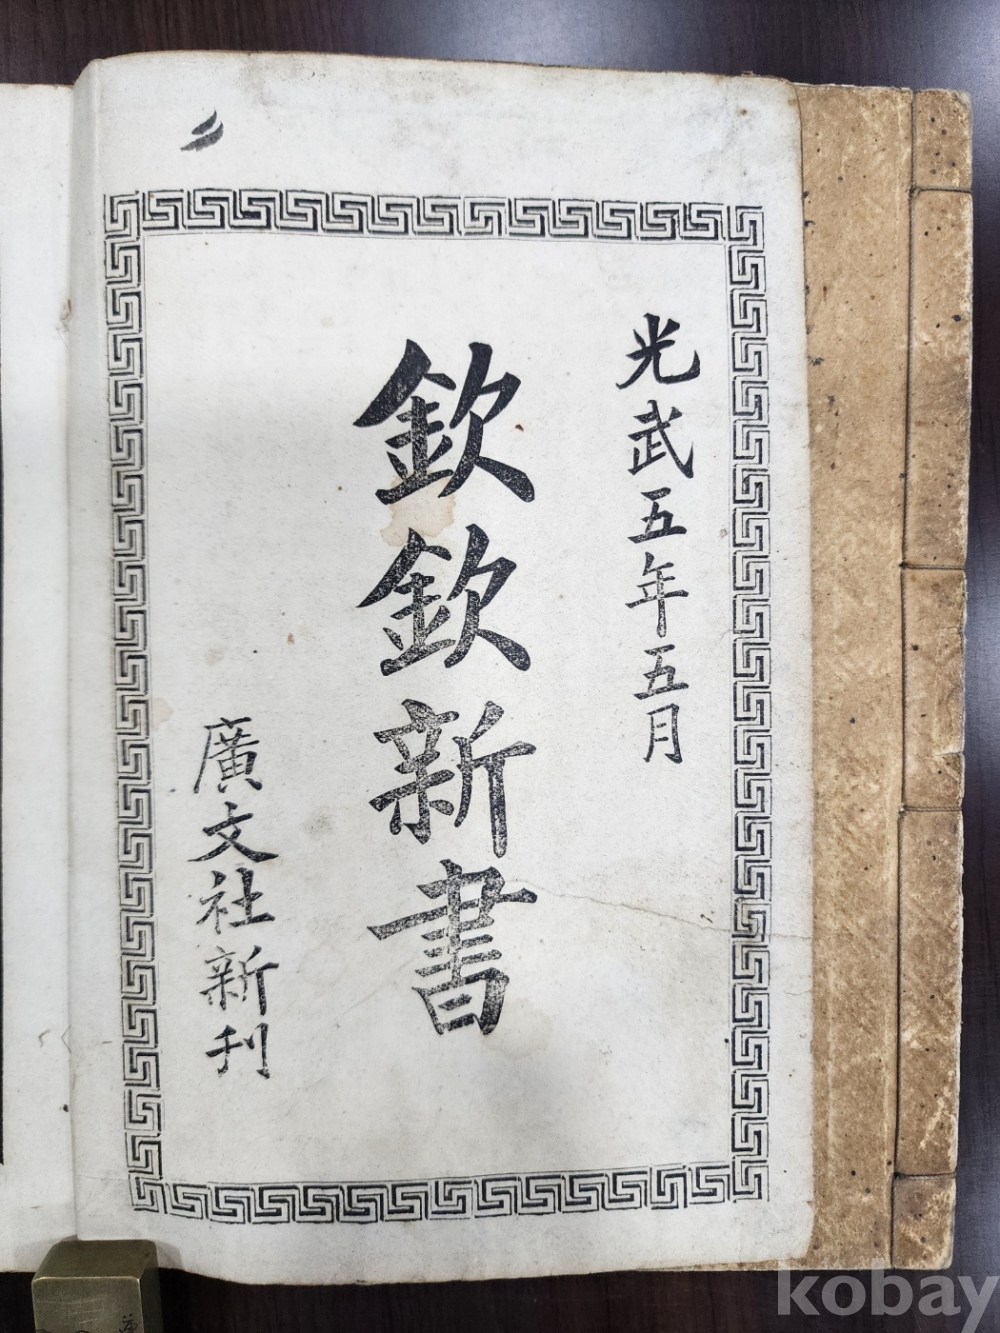 光武五年五月
欽欽新書
廣文社新刊
kobay